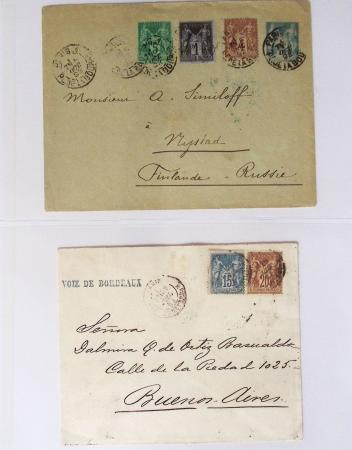 Monsieur A. Similoff
à
Nystad
Finlande - Russie
15
20
VOIE DE BORDEAUX
Señora
Dalmira Q. de Ortiz Basualdo
Calle de la Piedad 1025
Buenos-Aires